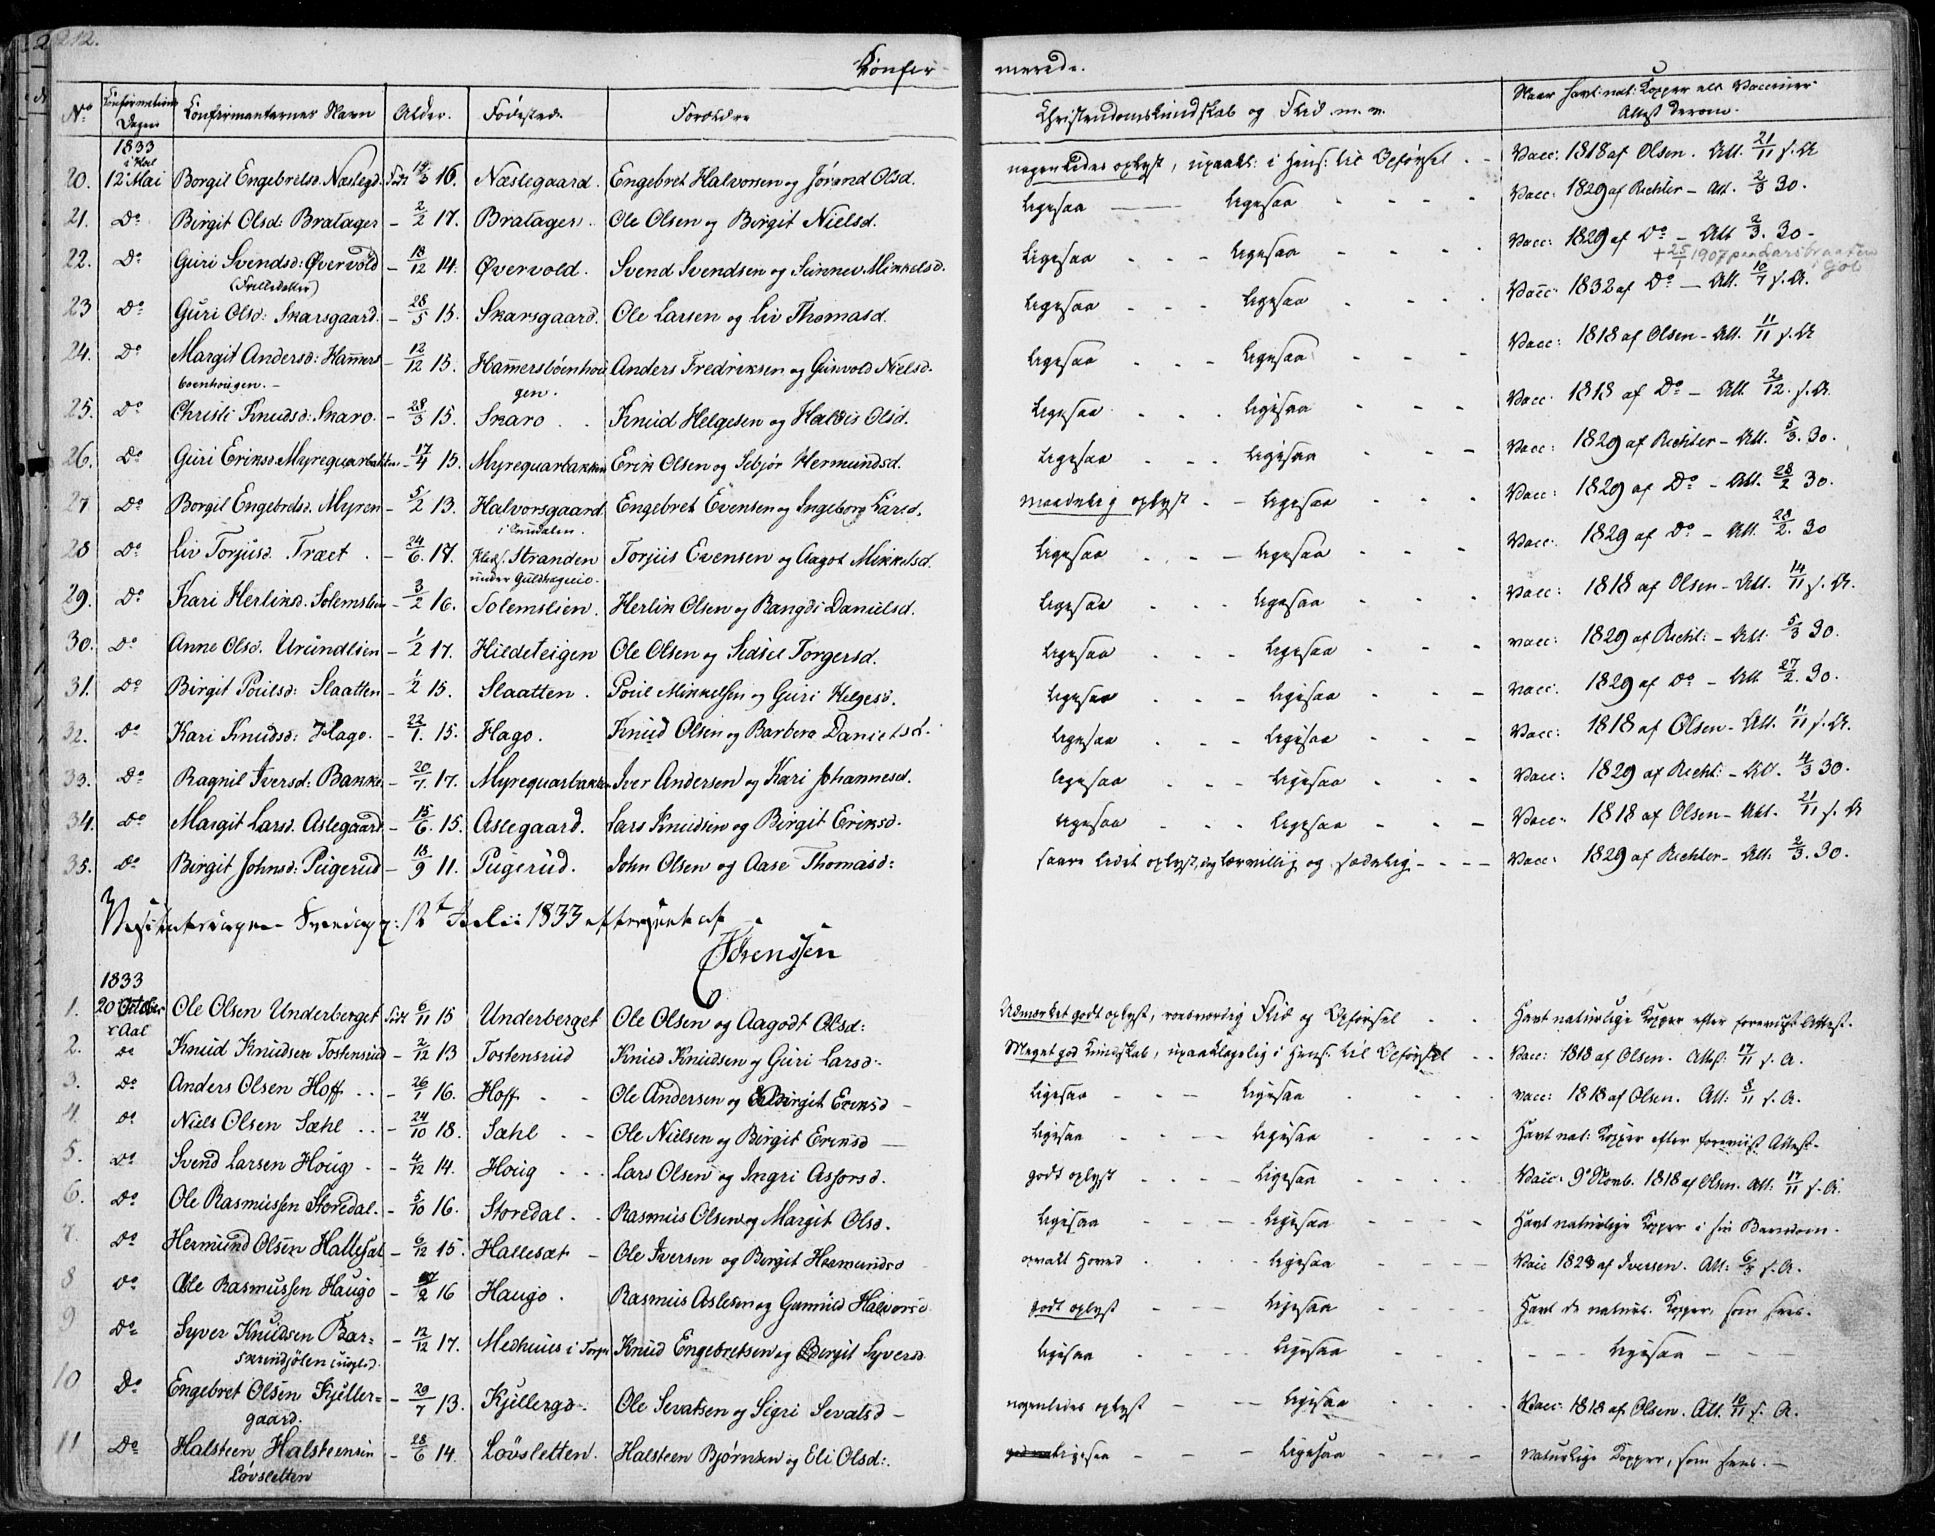 212.
Confir-
merede.
No
Confirmations Dagen
Confirmanternes Navn
Alder.
Fødested.
Forældre
Christendomskundskab og Flid m. v.
Naar havt nat: Kopper ell Vaccineret
Attest derom.
1833
i Hol
20. 12 Mai Borgil Engebretsd. Næslegd. Født 14/3 16. Næslegaard. Engebret Halvorsen og Jørand Olsd. nogenledes oplyst, upaakl: i Hens: til Opførsel - Vacc: 1818 af Olsen. Att. 21/11 s. A
21. Do Birgit Olsd: Bratager - 2/2 17. Bratager. Ole Olsen og Birgit Nielsd. ligesaa — ligesaa - - - Vacc: 1829 af Richter - Att. 2/3 30.
22. Do Guri Svendsd: Øvervold - 18/12 14. Øvervold. Svend Svendsen og Sunnev Mikkelsd. ligesaa - - - ligesaa - - - Vacc: 1829 af Do - Att 2/3. 30-
+ 25/1 1907 paa Larsbraaten i Gol
23 Do Guri Olsd: Skarsgaard. - 28/5 15. Skarsgaard. Ole Larsen og Liv Thomasd. ligesaa - - ligesaa - - - Vacc: 1832 af Do - Att. 10/7 s. A.
24. Do Margit Andersd: Hammers - 12/12 15. Hammersbøenhou Anders Fredriksen og Gunvold Nielsd. ligesaa - - ligesaa - - - Vacc: 1818 af Olsen - Att. 11/11 s. A
bøenhougen. - gen.
25. Do Christi Knudsd: Skaro. - 28/3 15. Skaro . . Knud Helgesen og Haldis Olsd. ligesaa . . . ligesaa - - - Vacc: 1818 af Do - Att. 2/12. s. A.
26. Do Guri Eriksd Myrequarbakken - 17/4 15. Myrequarbakken Erik Olsen og Sebjør Hermundsd. ligesaa . . . ligesaa - - - Vacc: 1829 af Richter - Att. 5/3. 30.
27 Do Borgil Engebredsd. Myren - 5/2 13. Halvorsgaard Engebret Evensen og Ingeborg Larsd. maadelig oplyst. - ligesaa - - - Vacc: 1829 af Do - Att. 28/2 30.
28 Do Liv Torjusd. Træet . - 24/6. 17. Stranden Torjus Evensen og Aagot Mikkelsd. ligesaa . . - ligesaa - - - Vacc: 1829 af Do - Att. 28/2. 30
under Guldhageie.
29. Do Kari Herliksd. Solemslien - 3/2 16. Solemslien. Herlik Olsen og Rangdi Danielsd. ligesaa . . . ligesaa - - - Vacc: 1818 af Olsen - Att. 14/11 s. A.
30. Do Anne Olsd. Urundlien - 1/2 17. Hildeteigen Ole Olsen og Sidsel Torgersd. ligesaa . . . ligesaa - - - vacc: 1829 af Richt: - Att. 5/3 30.
31. Do Birgit Poulsd: Slaatten - 1/2 15. Slaatten . Poul Mikkelsen og Guri Helgesd. ligesaa - - - ligesaa - - - vacc. 1829 af Do - Att. 27/2. 30.
32. Do Kari Knudsd: Hago. - 22/1. 15. Hago. Knud Olsen og Barbero Danielsd. ligesaa . . . ligesaa - - - Vacc: 1818 af Olsen - Att. 11/11 s. A.
33. Do Ragnil Iversd: Bakke - 20/7 17. Myrequarbakken Iver Andersen og Kari Johannesd. ligesaa - - - ligesaa - - - Vacc: 1829 af Richt: - Att. 4/3 30.
34. Do Margit Larsd. Aslegaard - 15/6. 15. Aslegaard. Lars Knudsen og Birgit Eriksd. ligesaa - - - ligesaa - - - Vacc: 1818 af Olsen - Att. 21/11 s. A
35. Do Birgit Johnsd: Pugerud - 18/9 11. Pugerud. John Olsen og Aase Thomasd: saare lidet oplyst, og lærvillig og sædelig - - - Vacc: 1829 af Richter - Att: 2/3. 30.
Visitatsdagen Fredag 12t Julii 1833 efterseet af
Sørenssen
1833
1. 20 October Ole Olsen Underberget Født 6/11 15 Underberget Ole Olsen og Aagodt Olsd: Udmærket godt oplyst, roesværdig Flid og Opførsel - - Havt naturlige Kopper efter foreviist Attest.
i Aal
2. Do Knud Knudsen Tostensrud - 2/12 13 Tostensrud Knud Knudsen og Guri Larsd: Meget god Kundskab, upaaklagelig i Hens: til Opførsel - - Vacc: 1818 af Olsen. Attst: 17/11 s. A.
3. Do Anders Olsen Hoff . . - 26/1 16. Hoff - - Ole Andersen og Birgit Eriksd - ligesaa - - - ligesaa - - - vacc: 1818 af Olsen. Att: 8/11 s. A.
4. Do Niels Olsen Sæhl . . - 24/10 18. Sæhl - - Ole Nielsen og Birgit Eriksd - ligesaa - - - ligesaa - - - Havt nat: Kopper efter foreviist Attest.
5. Do Svend Larsen Houg - - 4/12 14. Houg - - - Lars Olsen og Ingri Asforsd. godt oplyst - - - ligesaa - - - Vacc: 9de Novb. 1818 af Olsen. Att: 17/11 s. A.
6. Do Ole Rasmussen Storedal. - 5/10 16. Storedal - . Rasmus Olsen og Margit Olsd. ligesaa - - - ligesaa - - - Havt naturlige Kopper i sin Barndom.
7. Do Hermund Olsen Hallesæt - 6/12 15. Hallesæt - Ole Iversen og Birgit Hermundsd ligesaa - - - Vacc 1828 af Iversen. Att: 6/3 s. A.
8 Do Ole Rasmussen Haugo - /2 16 Haugo . Rasmus Aslesen og Gunnild Halvorsd godt oplyst - - - ligesaa - - - Havt de naturl. Kopper, som sees.
9 Do Syver Knudsen Bar= - 12/12 17. Medhuus i Torpe Knud Engebretsen og Birgit Syversd ligesaa - - - ligesaa - - - ligesaa - - -
skrindjølen
10 Do Engebret Olsen Kjeller= - 29/7 13. Kjellergd. Ole Sevatsen og Sigri Sevatsd - nogenledes oplyst - - ligesaa - - - Vacc: 1818 af Olsen. Att. 10/11 s. A.
gaard.
11 Do Halsteen Halsteensen - 28/6 14. Løvsletten. Halsteen Bjørnsen og Eli Olsd: ligesaa - - ligesaa - - - naturlige Kopper, som sees. -
Løvsletten